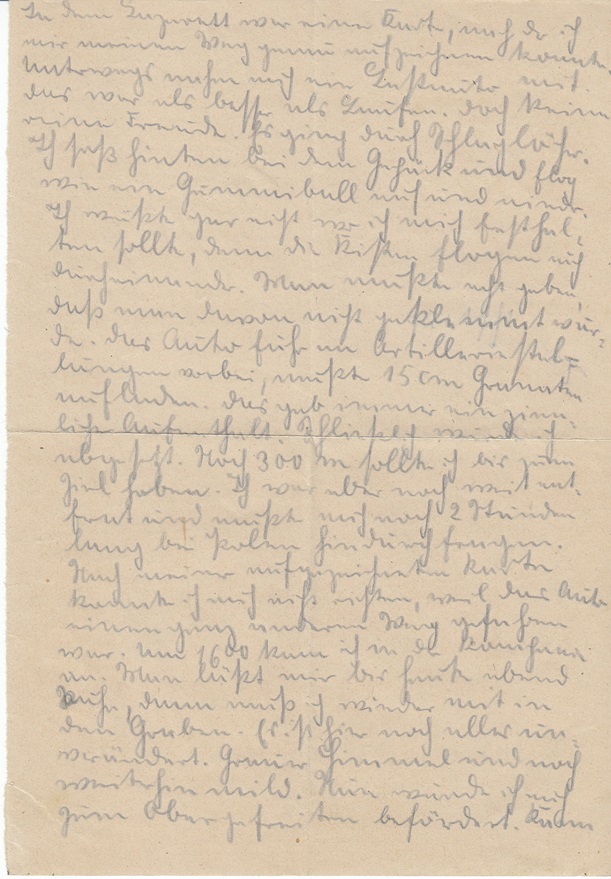 In dem Lazarett war eine Karte, nach der ich
mir meinen Weg genau aufzeichnen konnte.
Unterwegs nahm mich ein Lastauto mit.
das war als besser als Laufen. doch keine
reine Freude. Es ging durch Schlaglöcher.
Ich saß hinten bei dem Gepäck und flog
wie ein Gummiball auf und nieder.
Ich wußte gar nicht wo ich mich festhal-
ten sollte, denn die Kisten flogen auch
durcheinander. Man mußte acht geben,
daß man davon nicht geklemmt wur-
de. das Auto fuhr an Artilleriestel-
lungen vorbei, mußte 15 cm Granaten
aufladen. das gab immer ein ziem-
liche Aufenthalt. Schließlich wurde ich
abgesetzt. Noch 300 m sollte ich bis zum
Ziel haben. Ich war aber noch weit ent-
fernt und mußte mich noch 2 Stunden
lang bei Polen hindurchfragen.
Nach meiner aufgezeichneten Karte
konnte ich mich nicht richten, weil das Auto
einen ganz anderen Weg gefahren
war. um 1600 kam ich in der Kompanie
an. Man läßt mir bis heute abend
Ruhe, dann muß ich wieder mit in
den Graben. Es ist hier noch alles un-
verändert. Grauer Himmel und noch
weiterhin mild. Nun wurde ich auch
zum Obergefreiten befördert. Kaum